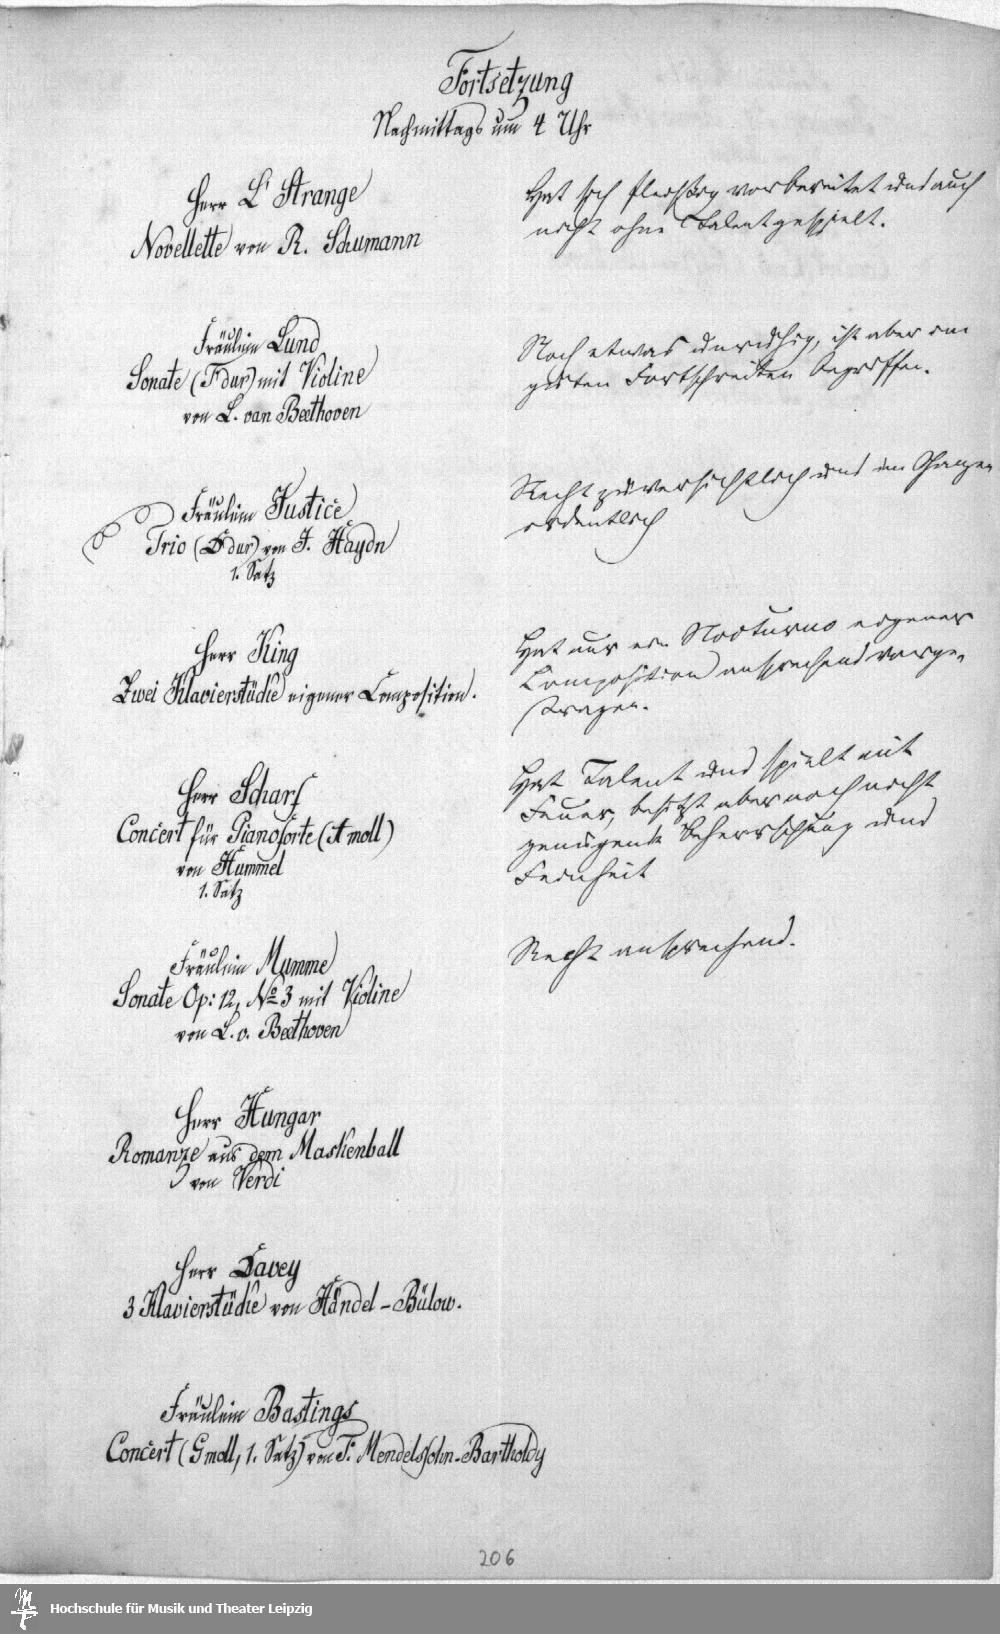 Fortsetzung
Nachmittags um 4 Uhr
Herr L'Strange
Novellette von R. Schumann
Hat sich fleißig vorbereitet und auch
nicht ohne Talent gespielt.
Fräulein Lund
Sonate (F dur) mit Violine
von L. van Beethoven
Noch etwas unruhig, ist aber im
guten Fortschreiten begriffen.
Fräulein Justice
Trio (G dur) von J. Haydn
1. Satz
Recht zuversichtlich und im Ganzen
ordentlich
Herr King
Zwei Klavierstücke eigener Composition.
Hat nur ein Nocturno eigener
Composition ansprechend vorge-
tragen.
Herr Scharf
Concert für Pianoforte (A moll)
von Hummel
1. Satz
Hat Talent und spielt mit
Feuer, besitzt aber noch nicht
genügende Beherrschung und
Feinheit
Fräulein Mumme
Sonate Op: 12, No 3 mit Violine
von L. v. Beethoven
Recht ansprechend.
Herr Hungar
Romanze aus dem Maskenball
von Verdi
Herr Davey
3 Klavierstücke von Händel-Bülow.
Fräulein Bastings
Concert (G moll, 1. Satz) von F. Mendelssohn-Bartholdy
206
Hochschule für Musik und Theater Leipzig